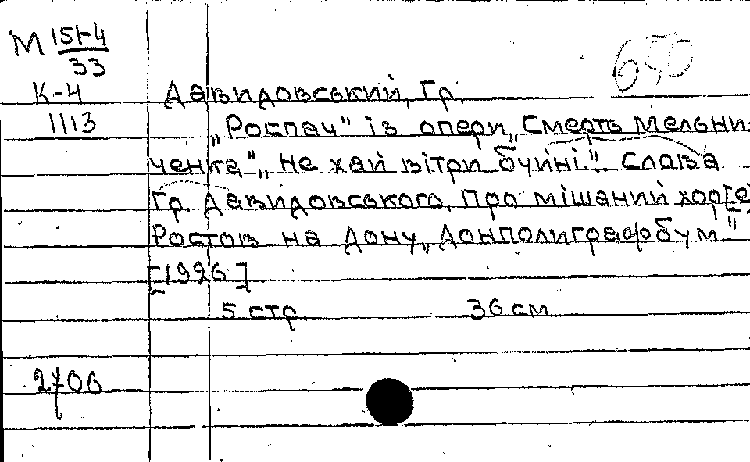 М 151-4
33
650
К-4
Давидовський, Гр.
1113
„Роспач" із опери „Смерть Мельни
ченка" „Не хай вітри бчині." Слова
Гр. Давидовського. Про мішаний хор[о
Ростов на Дону „Донполиграфбум"
[1926]
5 стр 36 см
2706